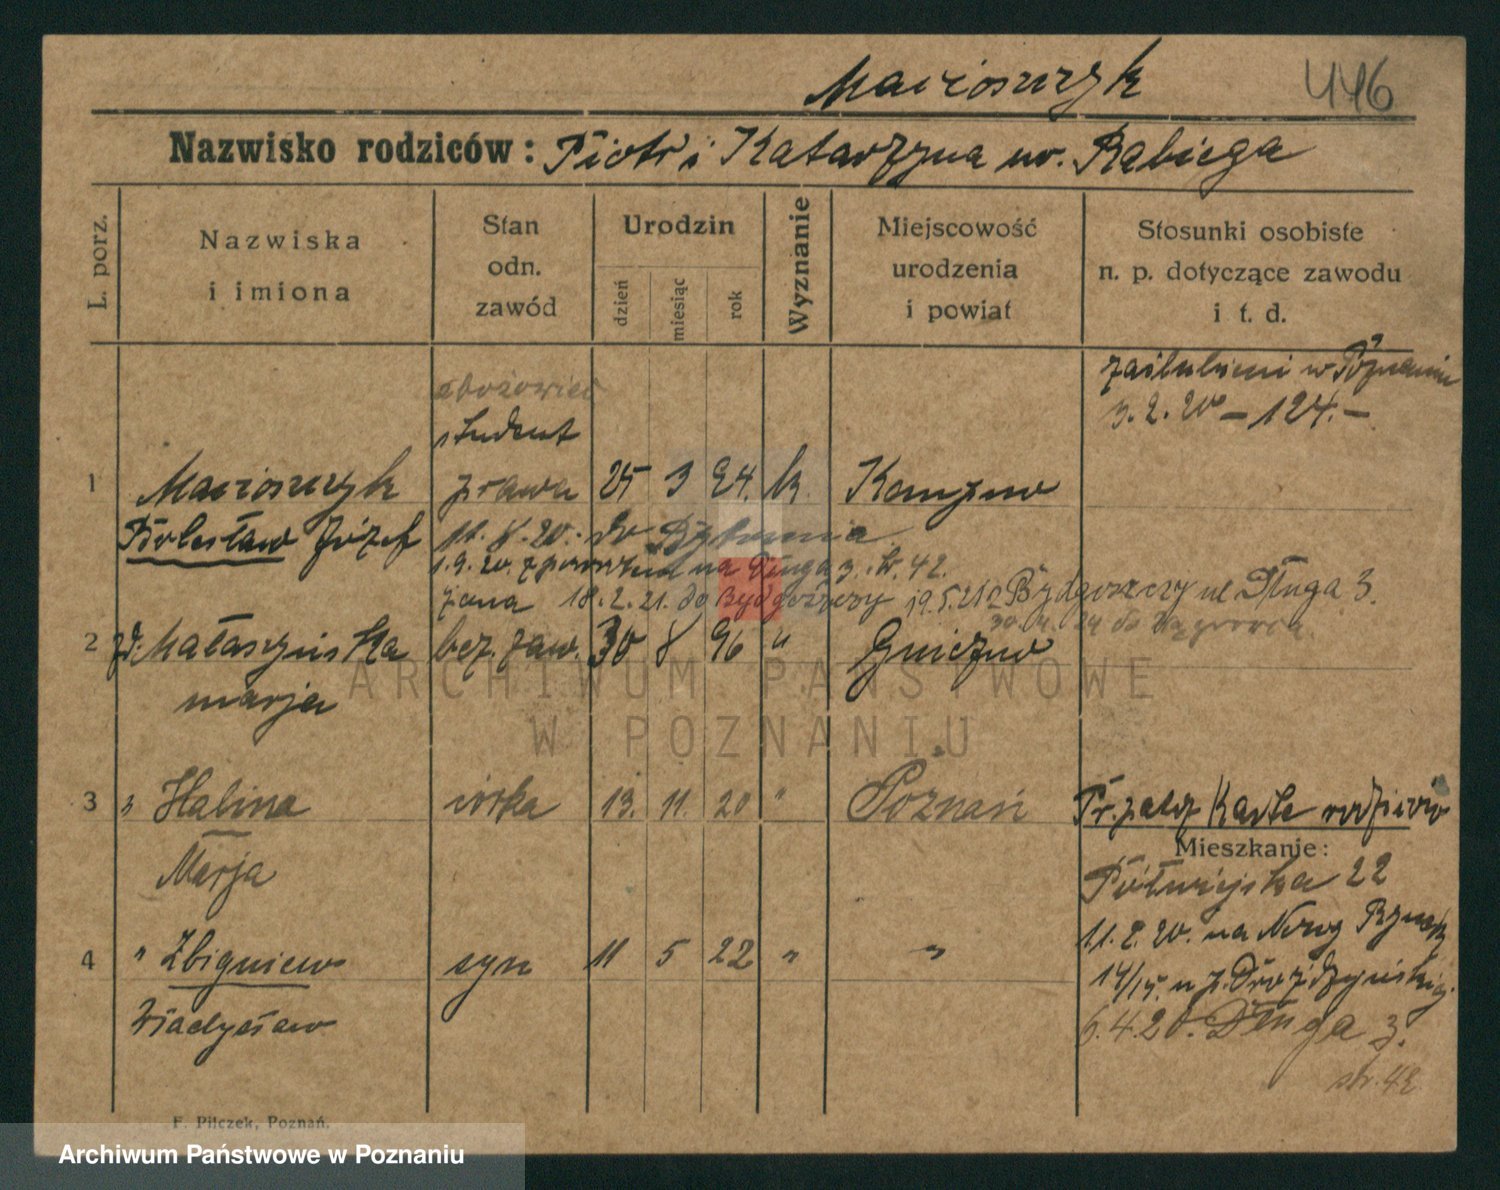 Macioszczyk 446
Nazwisko rodziców: Piotr i Katarzyna ur. Rabiega
L. porz.
Nazwiska i imiona
Stan odn. zawód
Urodzin
dzień
miesiąc
rok
Wyznanie
Miejscowość urodzenia i powiat
Stosunki osobiste n. p. dotyczące zawodu i t. d.
zaślubieni w Poznaniu
3.2.20 – 124.–
zbożowiec
student
1 Macioszczyk prawa 25 3 94. k.
Bolesław Józef 11.8.20. do Bytomia
1.9.20. z powrotem na Długa 3. 42.
żona 18.2.21. do Bydgoszczy 19.5.21 z Bydgoszczy ul Długa 3.
do Wągrowca
2 zd. Małaszyńska bez zaw. 30 8 96 " Gniezno
Marja
3 " Halina córka 13. 11. 20 " Poznań
Marja
Karta rodziców
Mieszkanie:
Półwiejska 22
11.2.20. na Nowy Rynek
14/15. u p. Drożdżyńskiej.
6.4.20. Długa 3.
str. 42
4 " Zbigniew syn 11 5 22 " "
Władysław
F. Pilczek, Poznań.
ARCHIWUM PAŃSTWOWE
W POZNANIU
Archiwum Państwowe w Poznaniu